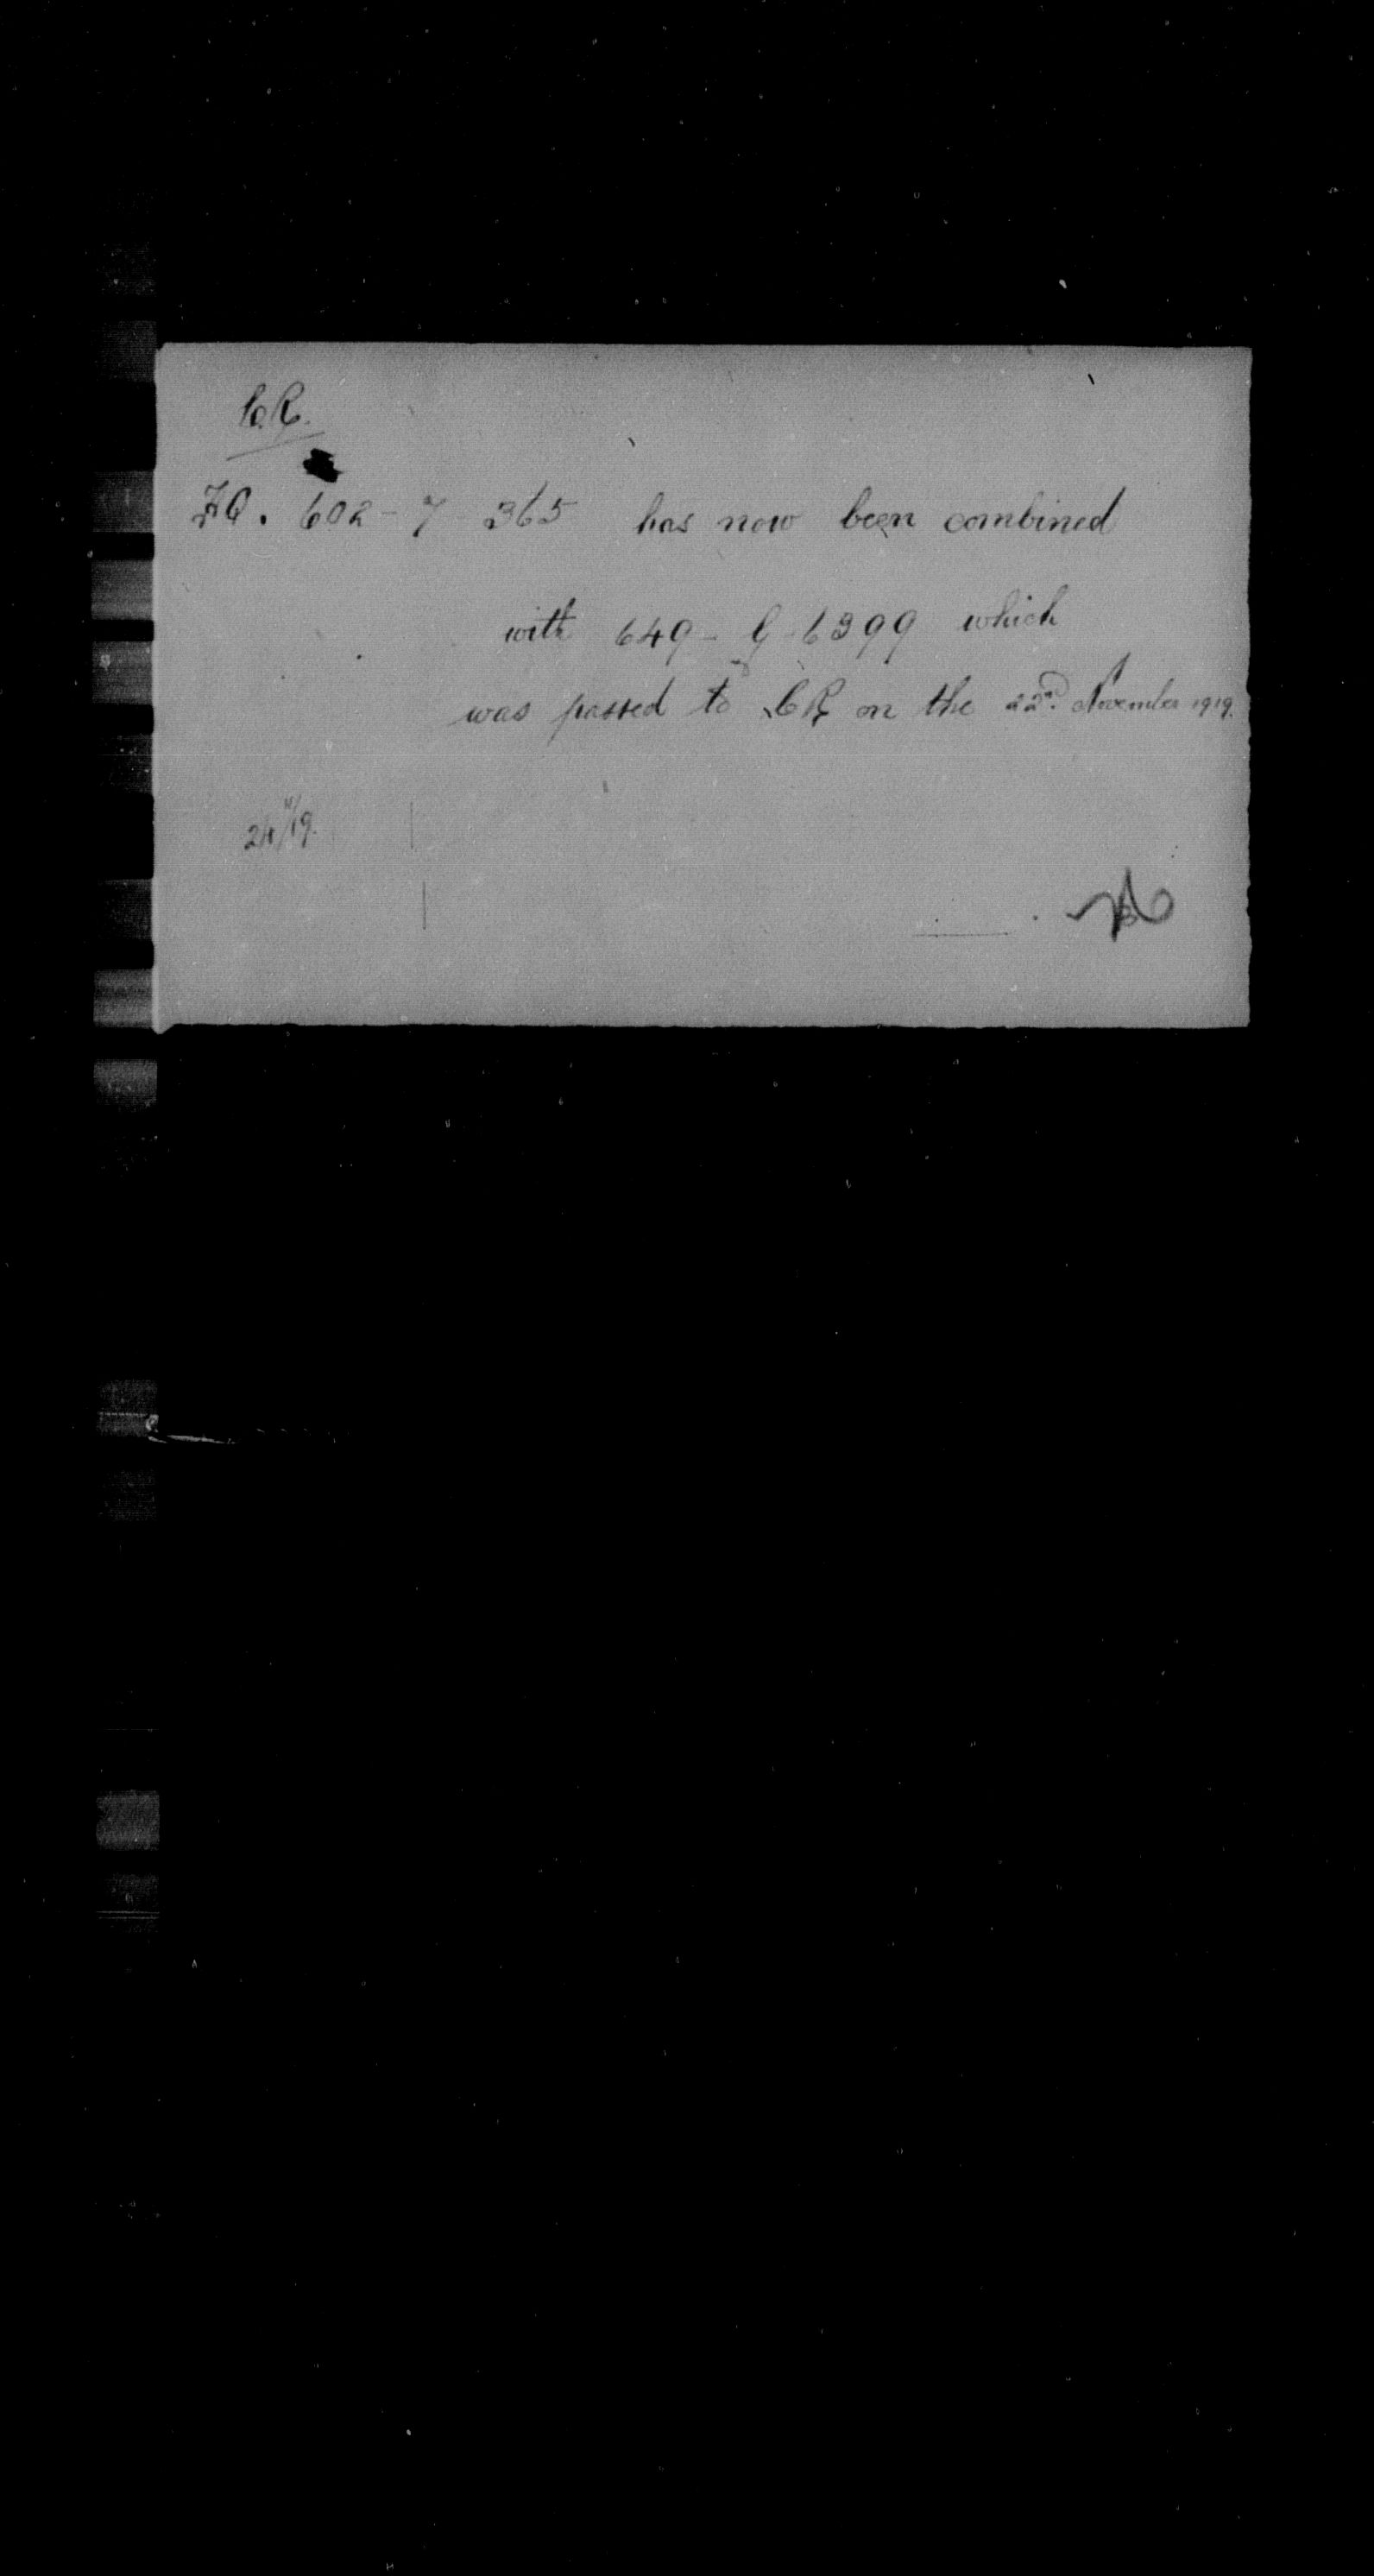 C.R.
HQ. 602-7-365 has now been combined
with 649-G-6399 which
was passed to CR on the 22nd November 1919.
24/11/19.